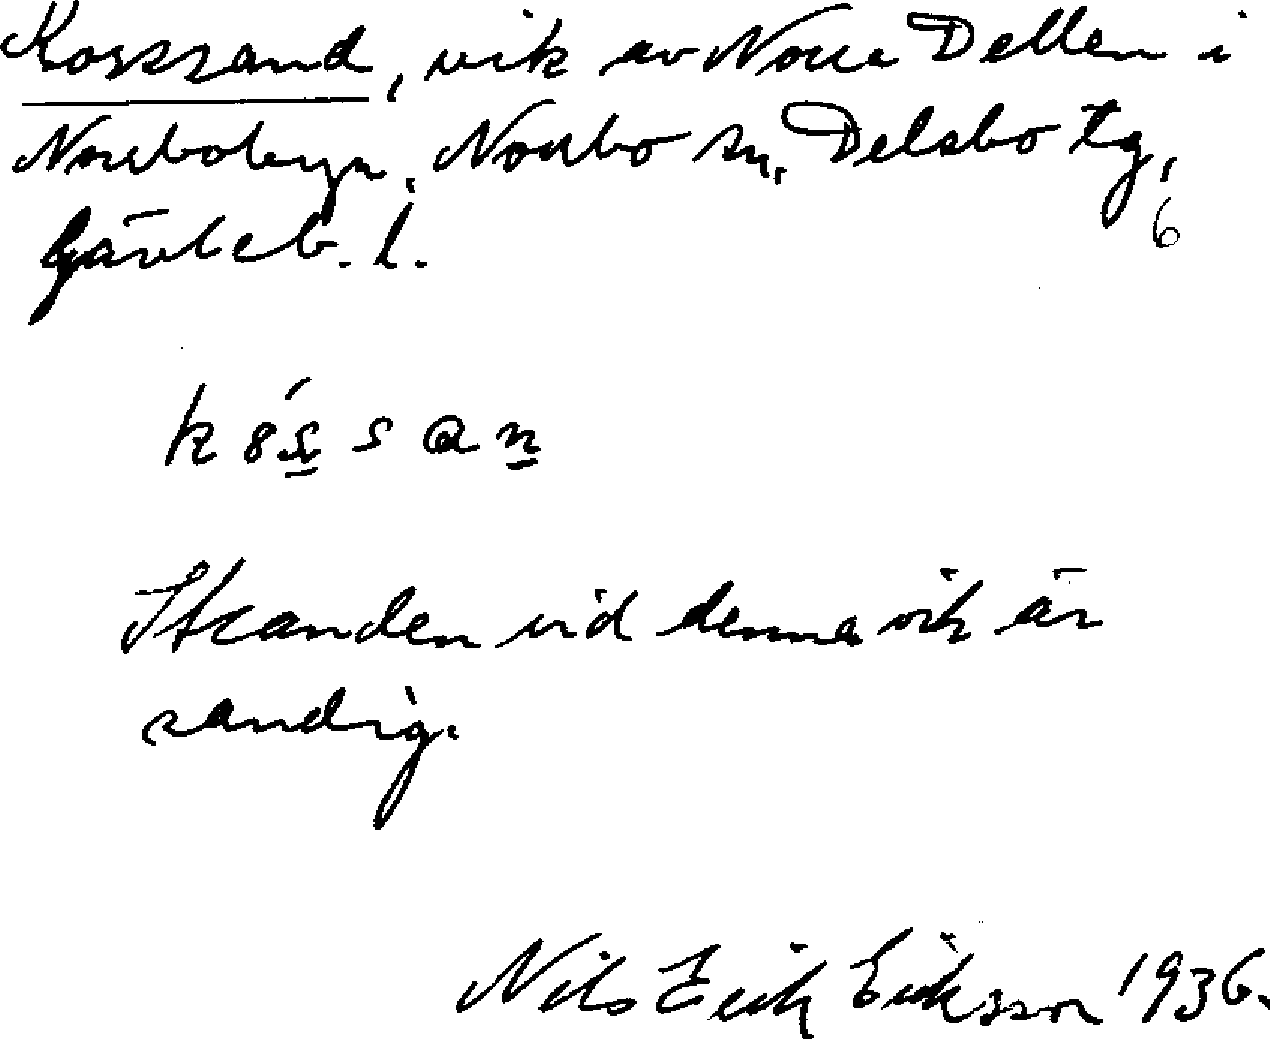 Korssand, vik av Norra Dellen i
Norrbobyn, Norrbo sn, Delsbo tg,
Gävleb. l.
6
Stranden vid denna vik är
sandig.
Nils Erik Eriksson 1936.